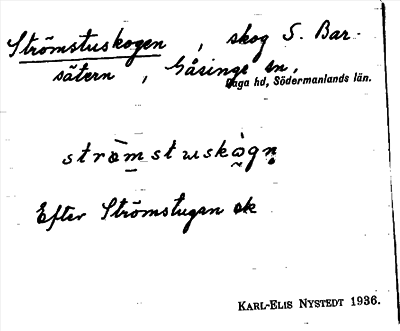 Strömstuskogen, skog S. Bar-
sätern, Gåsinge sn,
Daga hd, Södermanlands län.
strø̀mstuskògn
Efter Strömstugan ok
KARL-ELIS NYSTEDT 1936.